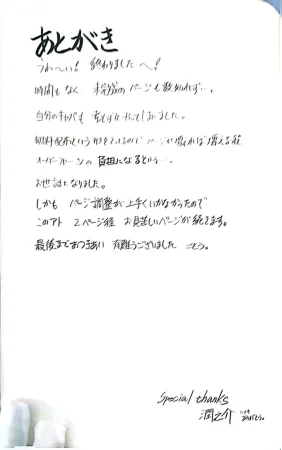 あとがき
うわ〜い! 終わりました〜!
時間もなく 未完成のページも数知れず…。
自分のキャパも考えずにやってしまいました。
無料配布という形をとっているので ページが増えれば増える程
オーバーフローンの負担になるという…。
お世話になりました。
しかも ページ調整が上手くいかなかったので
このアト 2ページ程 お見苦しいページが続きます。
最後までおつきあい 有難うございました
Special thanks
潤之介 いつもありがとう。